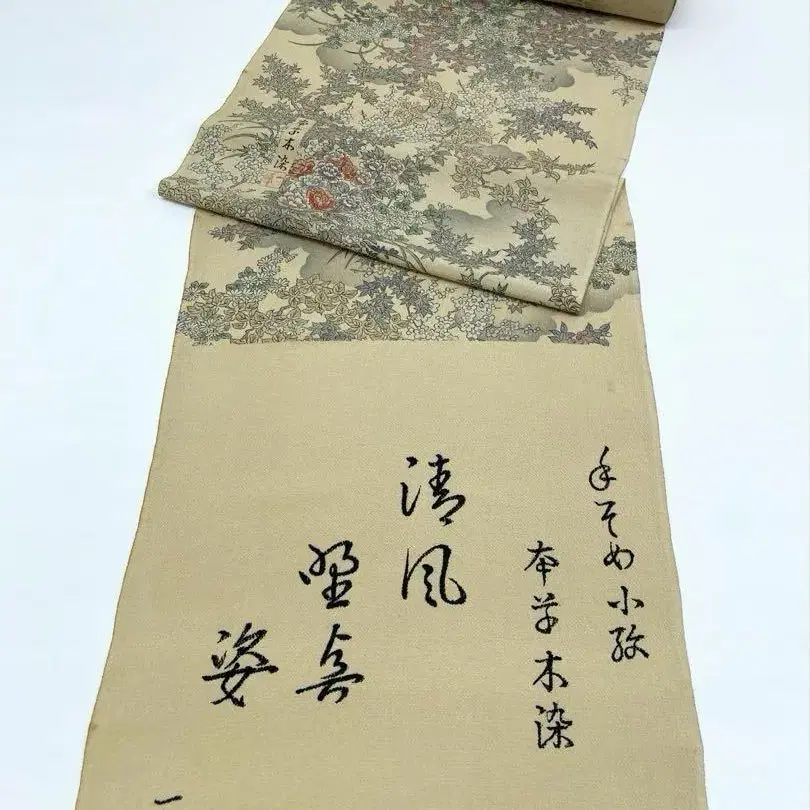 手そめ小紋
本草木染
清風
野点
姿
一
草木染